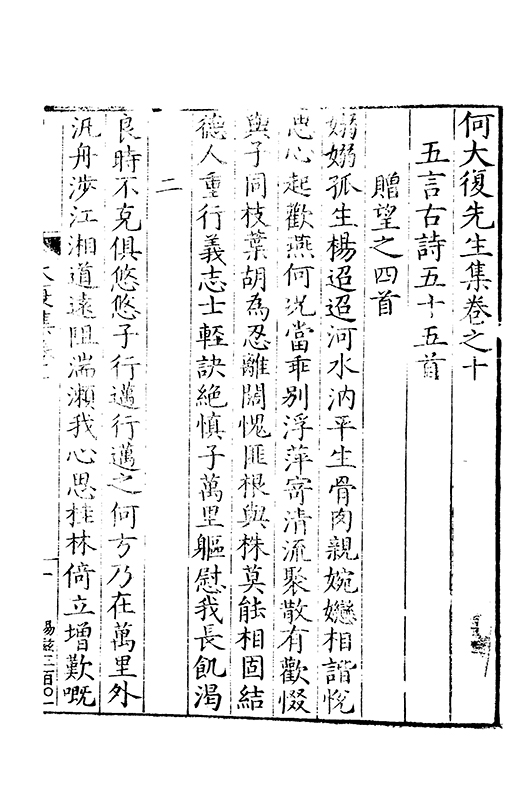 何大復先生集卷之十
五言古詩五十五首
贈望之四首
嫋嫋孤生楊迢迢河水汭平生骨肉親婉孌相諧悅
中心起歡燕何況當乖別浮萍寄清流聚散有歡惙
與子同枝葉胡為忍離闊愧匪根與株莫能相固結
德人重行義志士輕訣絕慎子萬里軀慰我長飢渴
二
良時不克俱悠悠子行邁行邁之何方乃在萬里外
汎舟涉江湘道遠阻湍瀨我心思桂林倚立增歎嘅
大復集卷十
一
易茲三百〇一